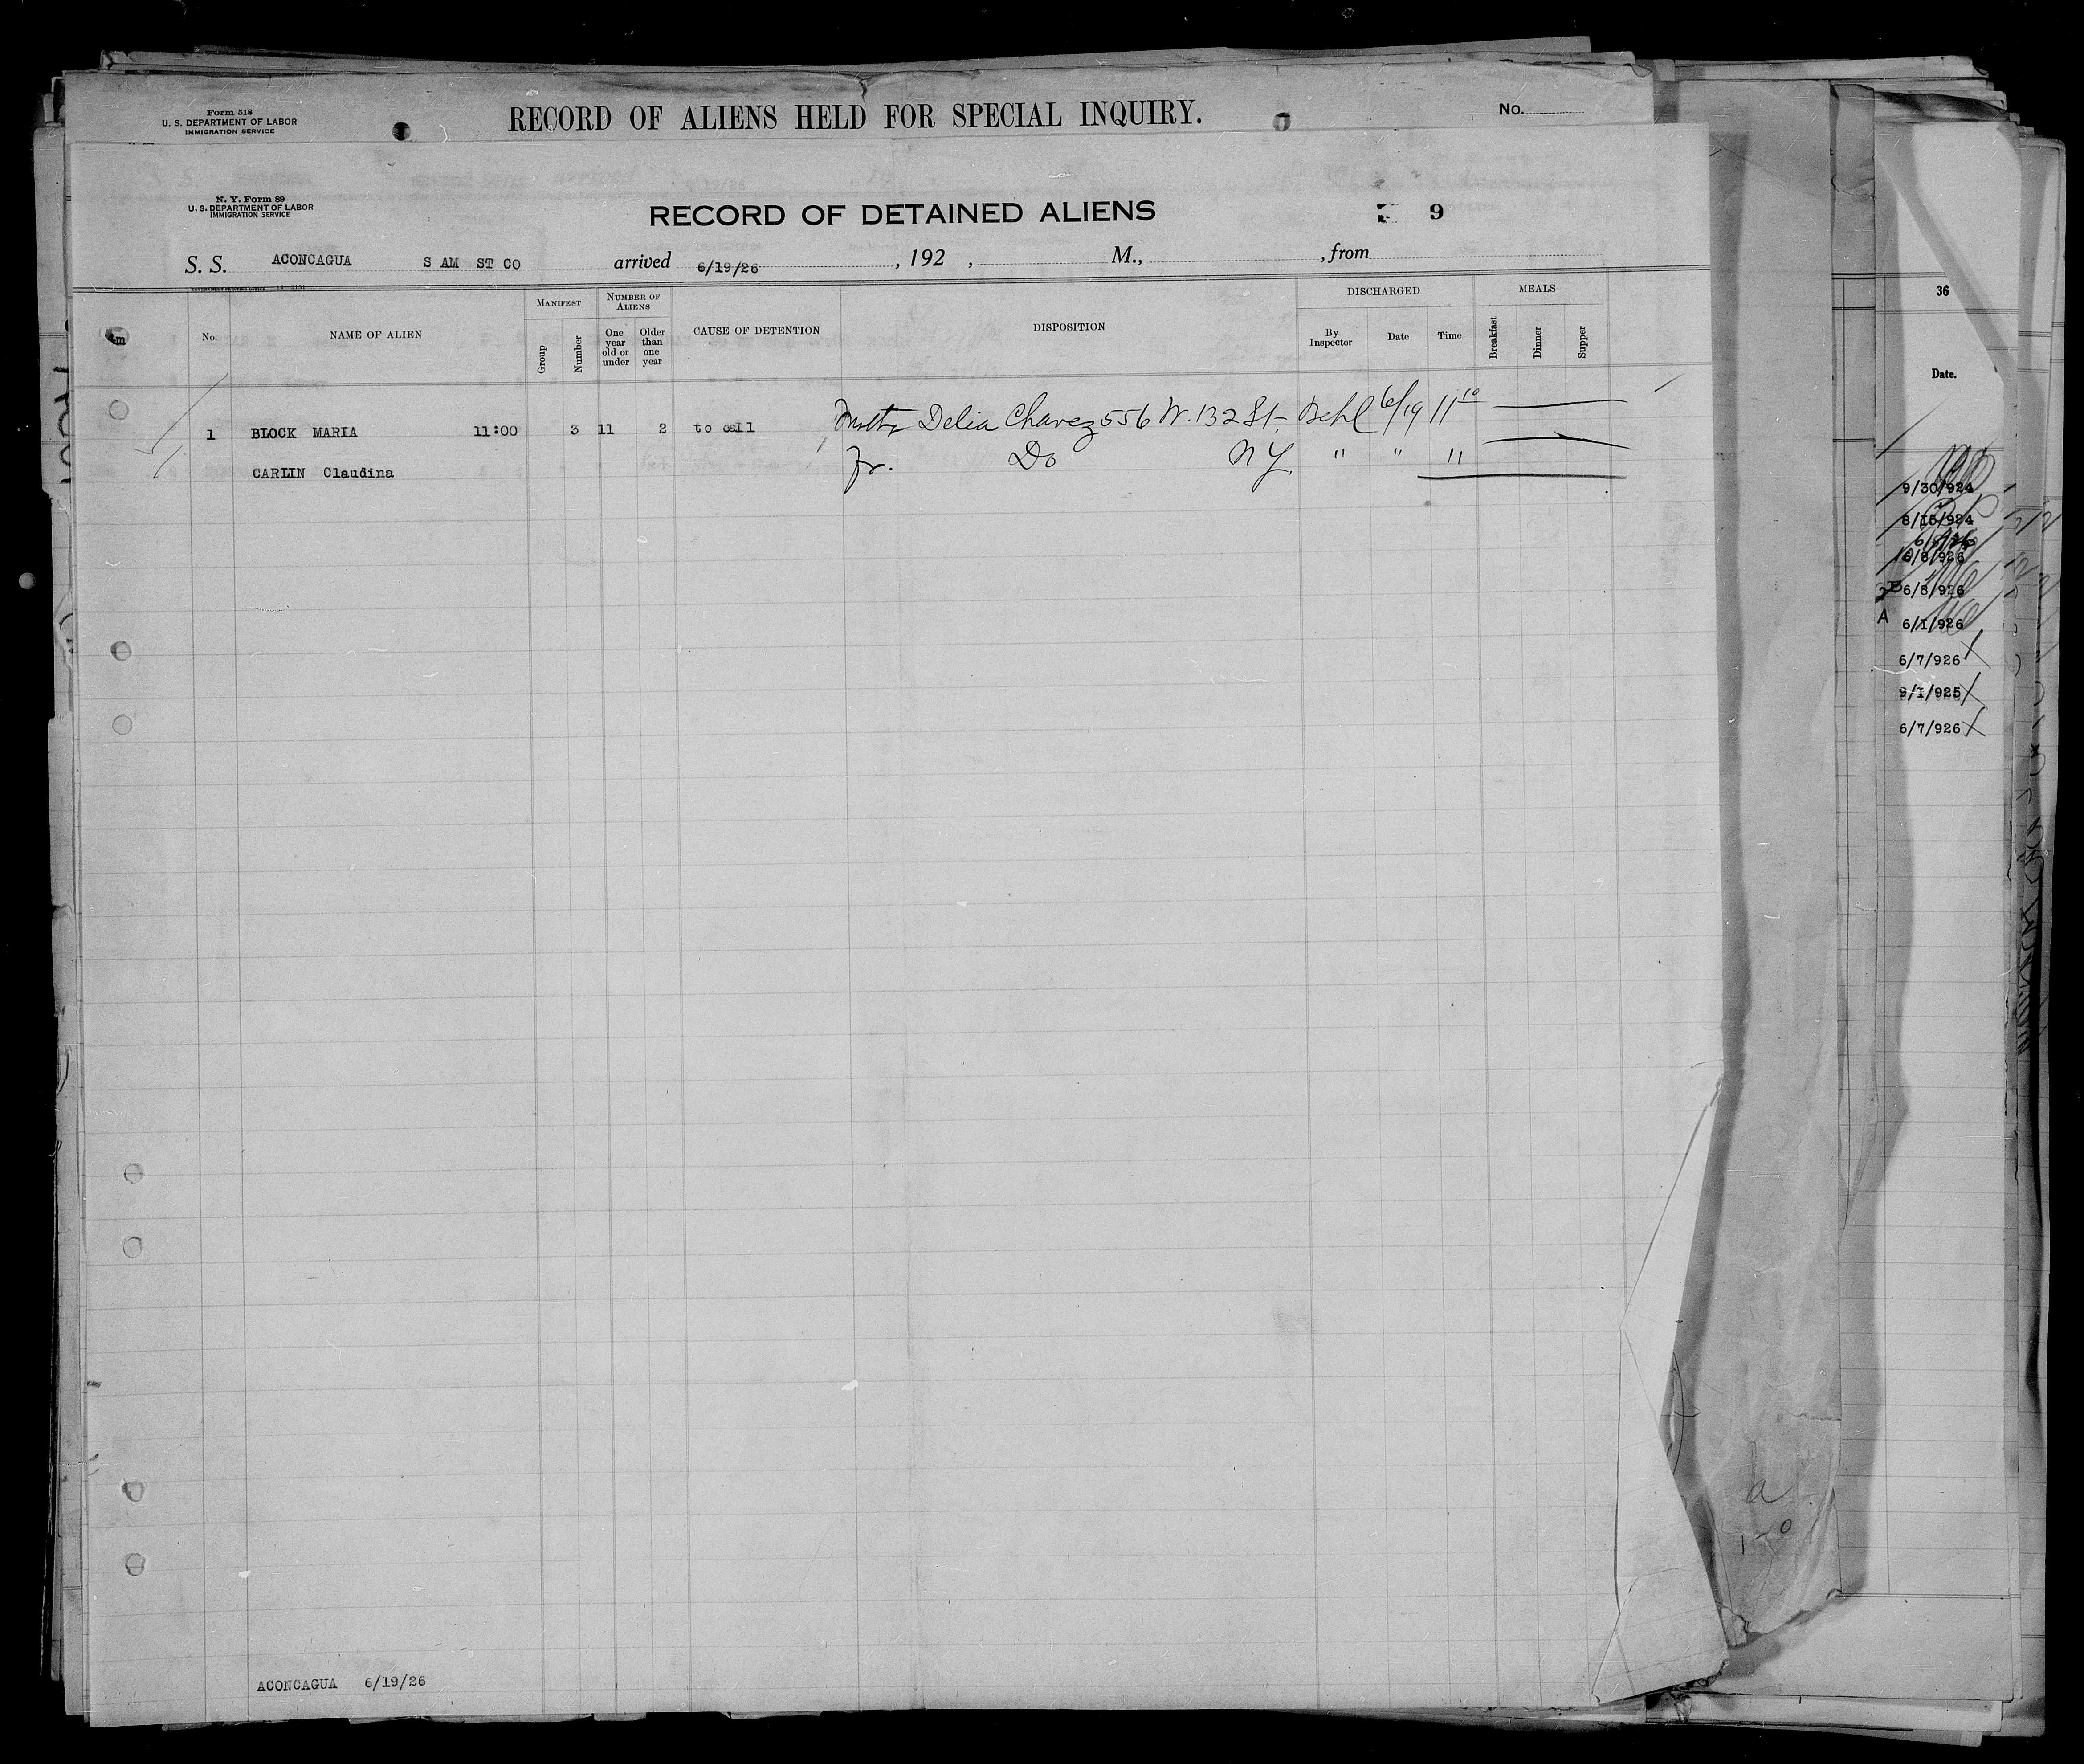 Form 518
U. S. DEPARTMENT OF LABOR
IMMIGRATION SERVICE
RECORD OF ALIENS HELD FOR SPECIAL INQUIRY.
No.
N. Y. Form 89
U. S. DEPARTMENT OF LABOR
IMMIGRATION SERVICE
RECORD OF DETAINED ALIENS
9
S. S. ACONCAGUA S AM ST CO arrived 6/19/26 , 192 , M., , from
No.
NAME OF ALIEN
MANIFEST
Group
Number
NUMBER OF ALIENS
One year old or under
Older than one year
CAUSE OF DETENTION
DISPOSITION
DISCHARGED
By Inspector
Date
Time
MEALS
Breakfast
Dinner
Supper
1 BLOCK MARIA 11:00 3 11 2 to call Delia Chavez 556 W. 132 St- 6/19 11 10
CARLIN Claudina Do N Y. " " "
ACONCAGUA 6/19/26
36
Date.
9/30/924
8/15/924
6/8/926
6/8/926
A 6/1/926
6/7/926
9/1/925
6/7/926